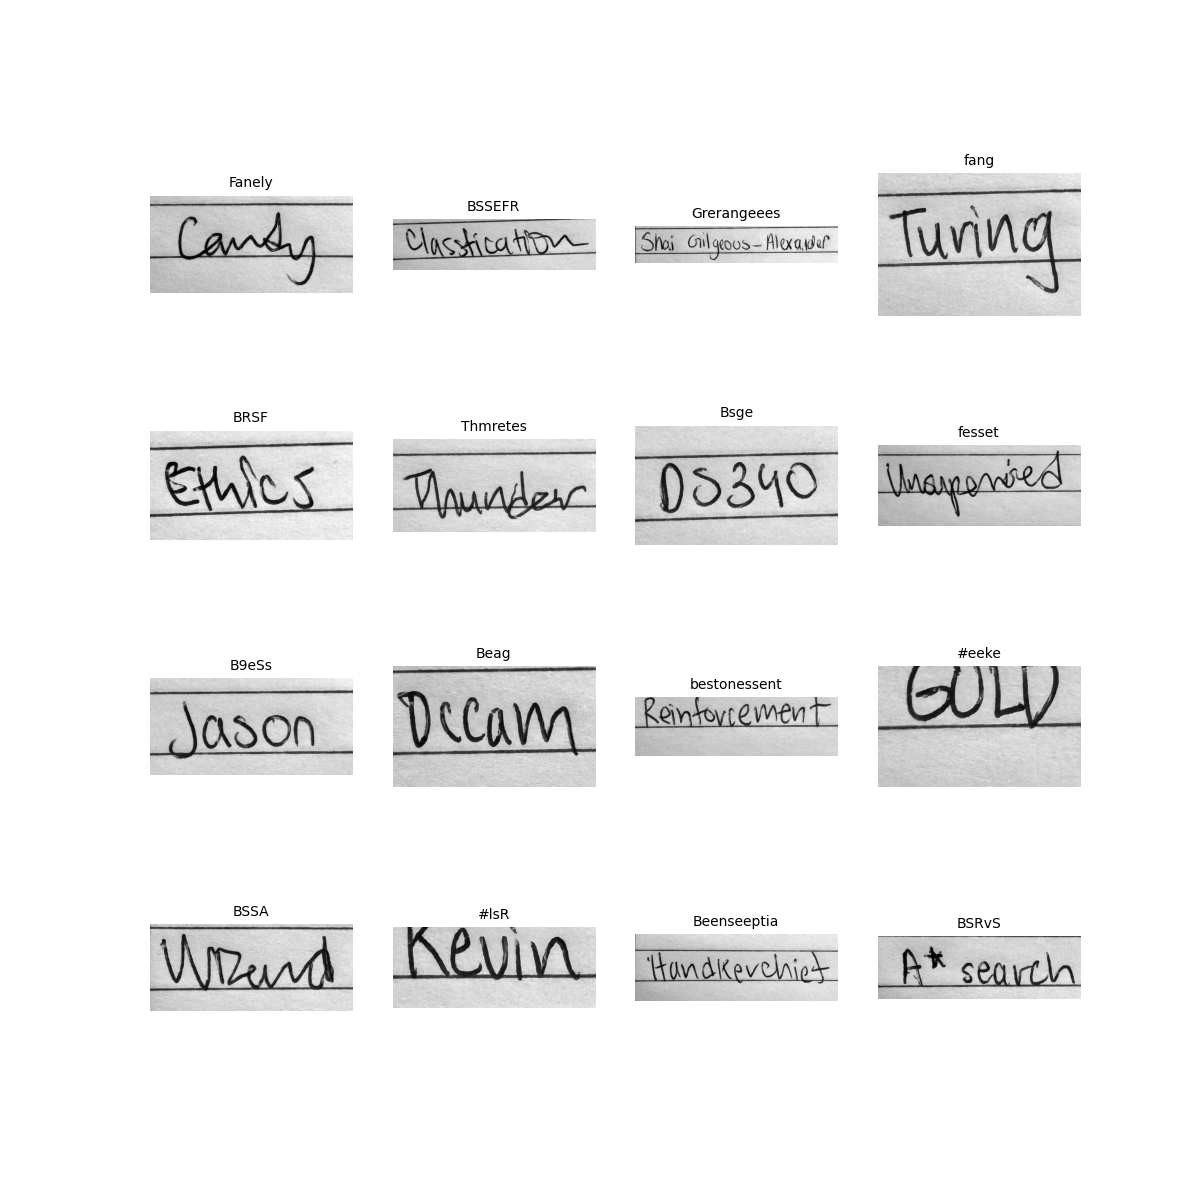 Fanely
Candy
BSSEFR
Classfication
Grerangeees
Shai Gilgeous-Alexander
fang
Turing
BRSF
Ethics
Thmretes
Thunder
Bsge
DS340
fesset
B9eSs
Jason
Beag
Occam
bestonessent
Reinforcement
#eeke
GOLD
BSSA
Wizard
#lsR
Kevin
Beenseeptia
Handkerchief
BSRvS
A* search